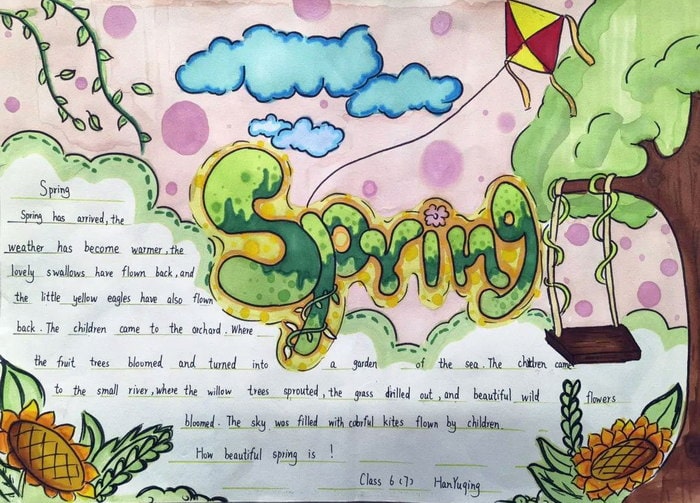 Spring
Spring
Spring has arrived, the
weather has become warmer, the
lovely swallows have flown back, and
the little yellow eagles have also flown
back. The children came to the orchard. Where
the fruit trees bloomed and turned into a garden of the sea. The children came
to the small river, where the willow trees sprouted, the grass drilled out, and beautiful wild flowers
bloomed. The sky was filled with colorful kites flown by children.
How beautiful spring is !
Class 6 (7) HanYuqing